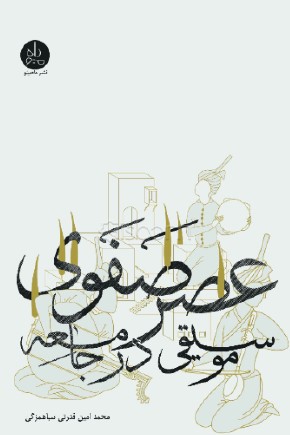 نشر
عصر صفوی
موسیقی در جامعه
محمد امین قدرتی سیاهمزگی